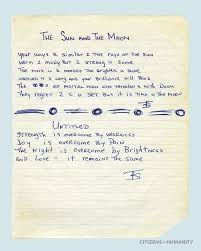 THE SUN AND THE MOON
your ways R similar 2 the rays of the sun
Warm 2 many But 2 strong 4 some
The more U R the Brighter U shine
4 long and your Brilliance will Blind
The of mortal men who vandalize with Doom
They regret 2 C U SET But it is time 4 the MOON
Untitled
STRENGTH IS OVERCOME BY WEAKNESS
Day is overcome by Pain
The Night is overcome by Brightness
and Love - it remains the same
CITIZENS of HUMANITY